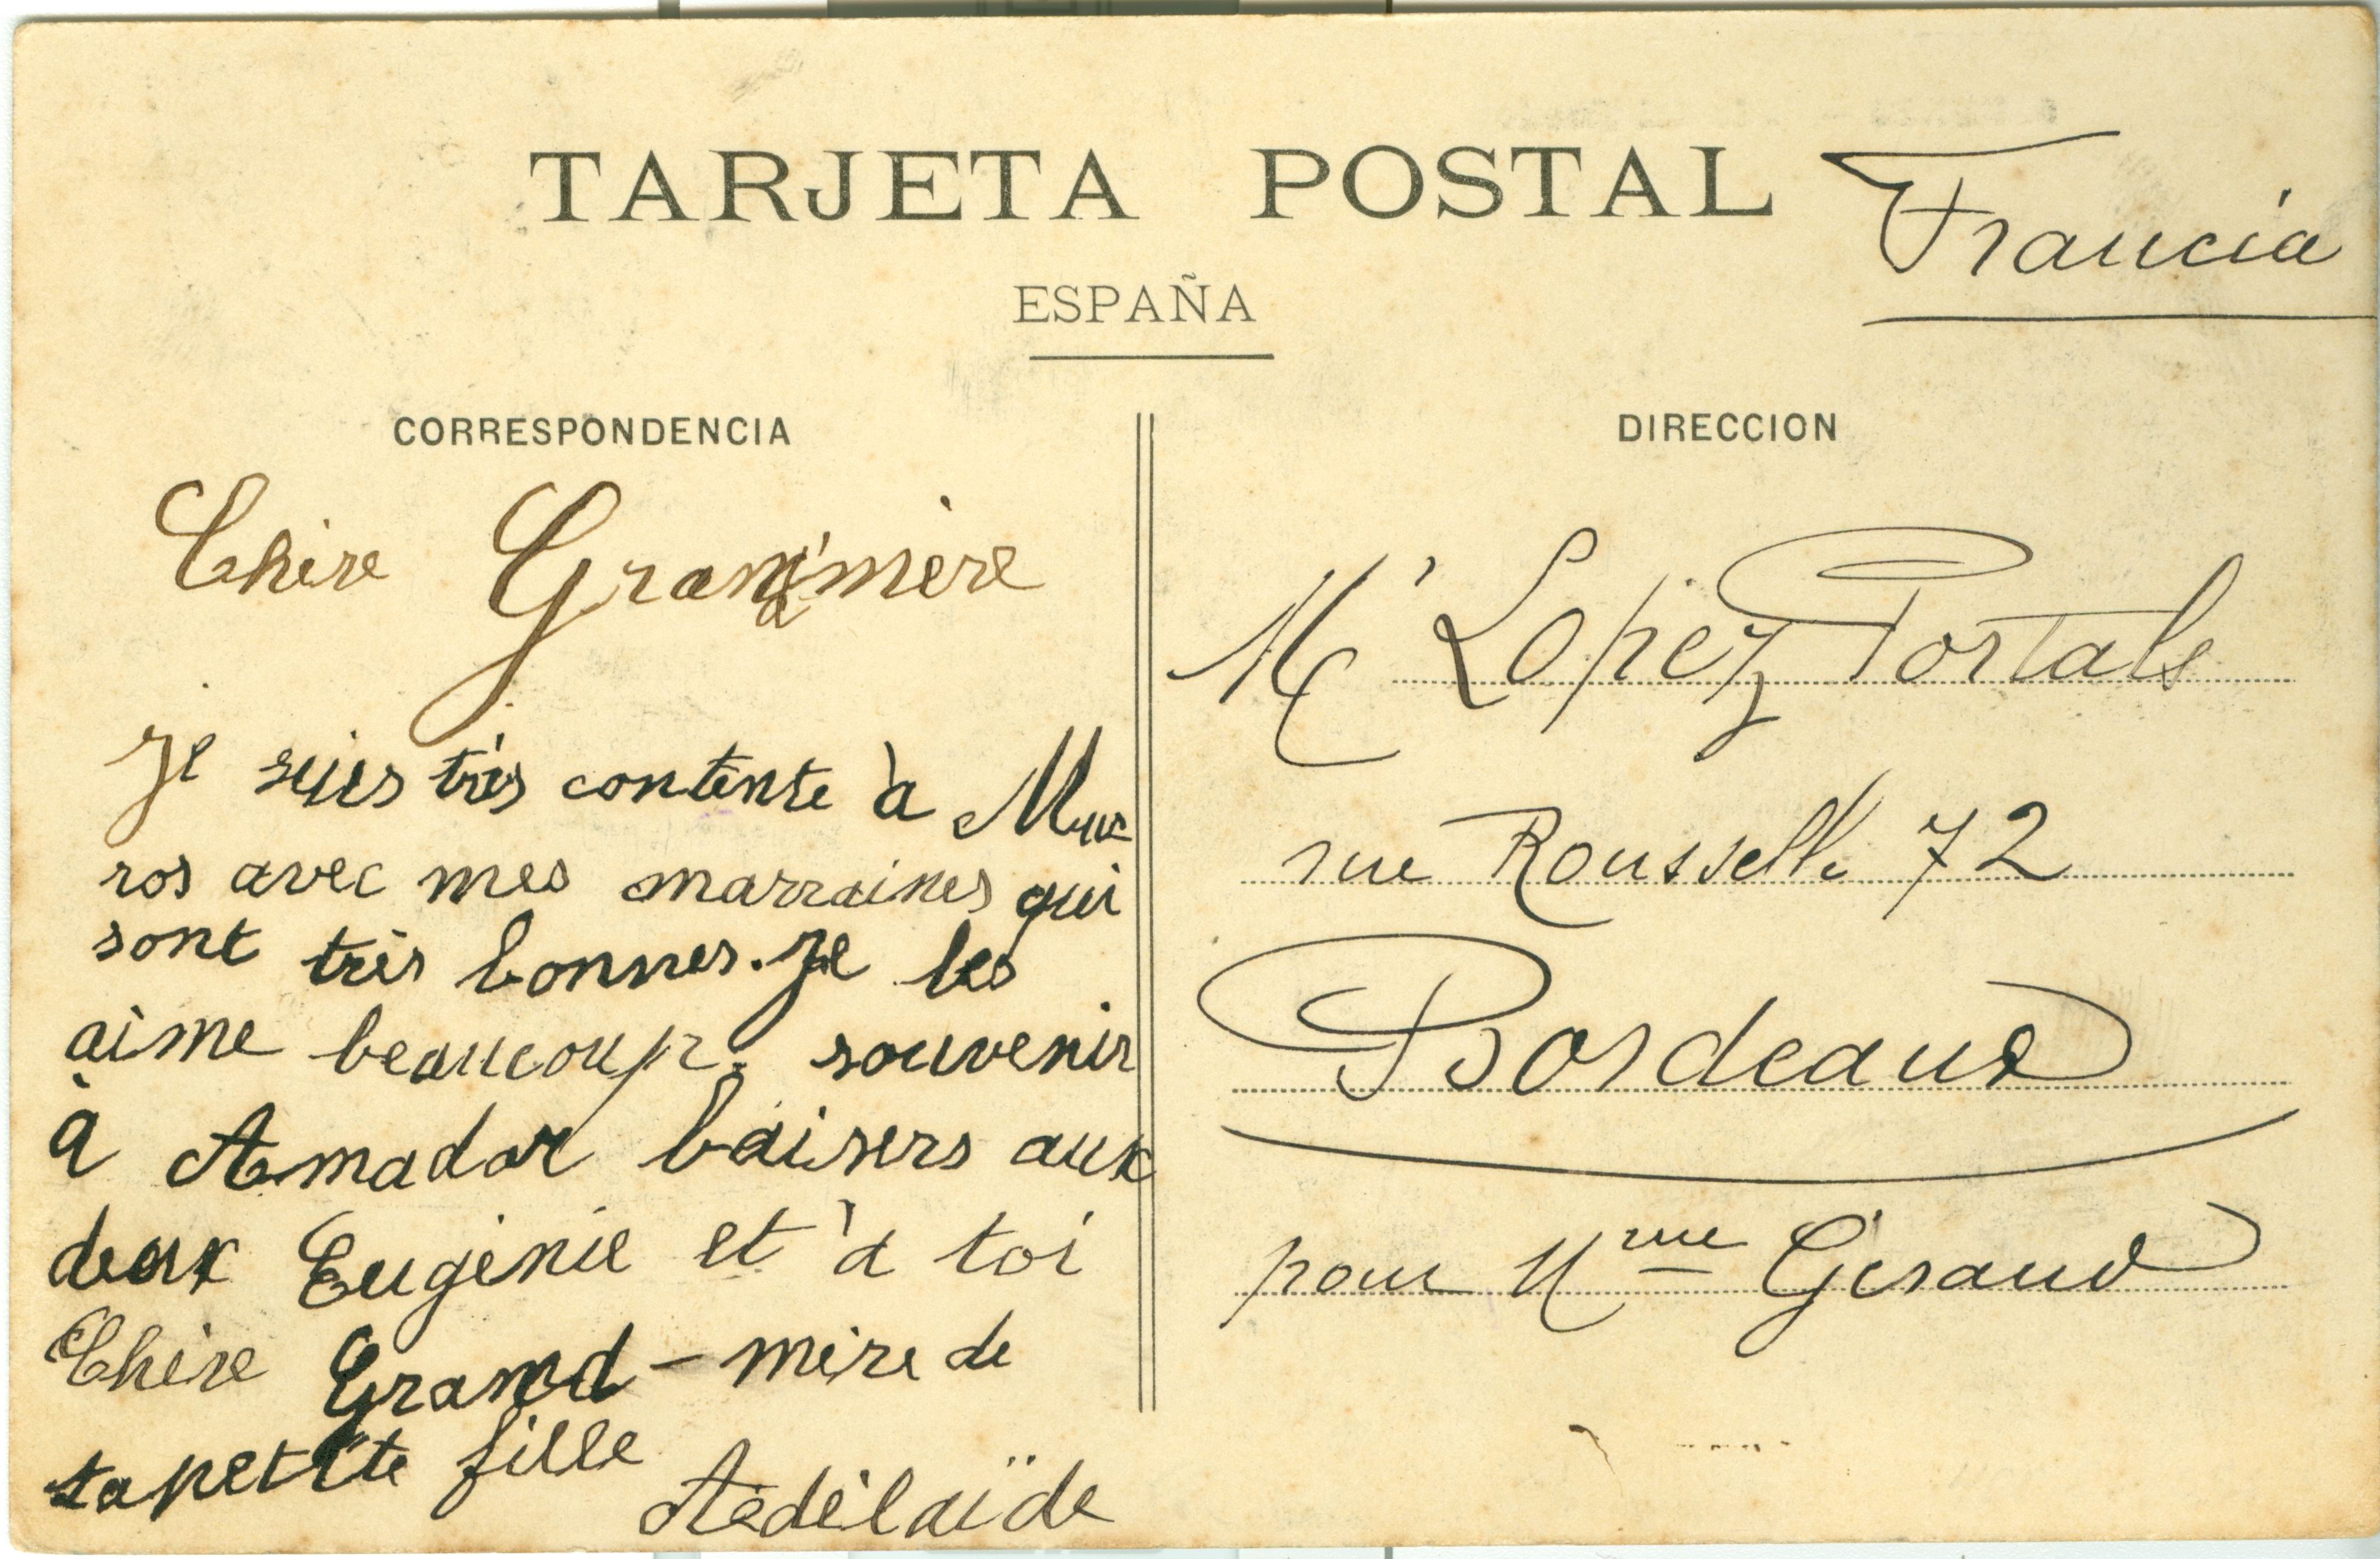 TARJETA POSTAL
Francia
ESPAÑA
CORRESPONDENCIA
Chère Grand'mère
Je suis très contente à Mu
ros avec mes marraines qui
sont très bonnes. Je les
aime beaucoup. souvenir
à Amador baisers aux
deux Eugénie et à toi
Chère Grand-mère de
ta petite fille
Adélaïde
DIRECCION
Mr Lopez Portals
rue Rousselle 72
Bordeaux
pour Mme Géraud